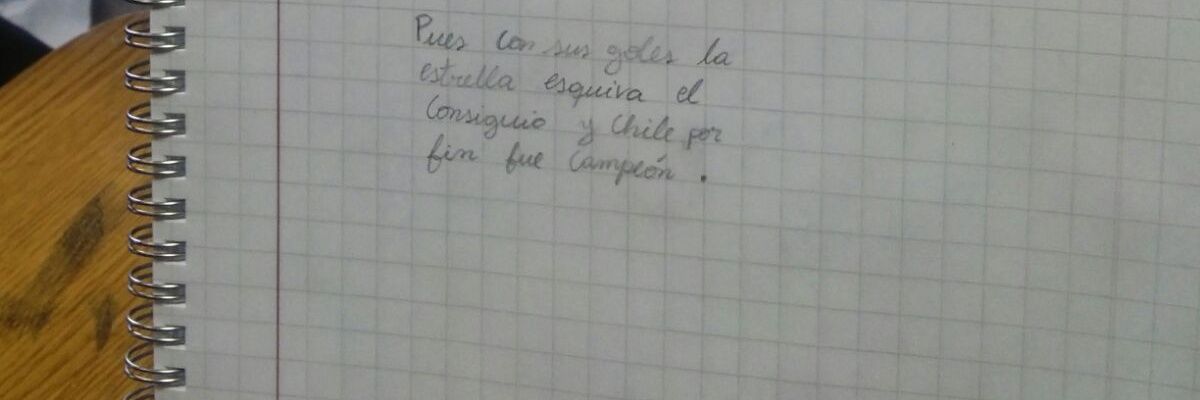 Pues con sus goles la
estrella esquiva el
consiguio y Chile por
fin fue campeón.